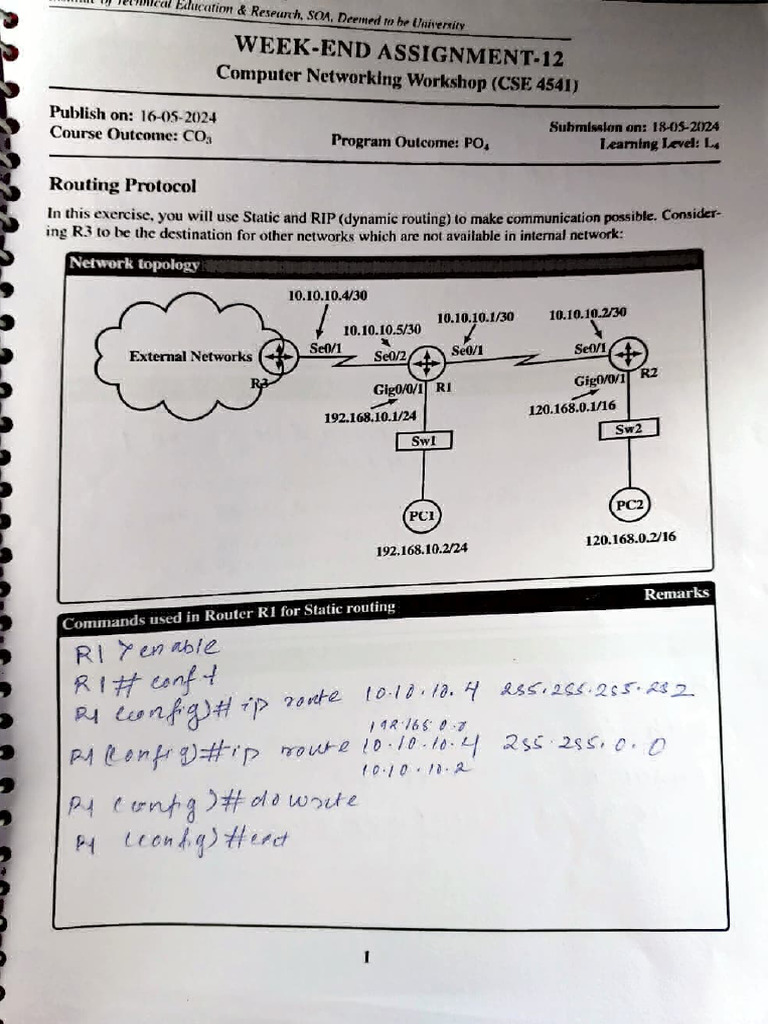 of Technical Education & Research, SOA, Deemed to be University
WEEK-END ASSIGNMENT-12
Computer Networking Workshop (CSE 4541)
Publish on: 16-05-2024
Submission on: 18-05-2024
Course Outcome: CO₃
Program Outcome: PO₄
Learning Level: L₄
Routing Protocol
In this exercise, you will use Static and RIP (dynamic routing) to make communication possible. Consider-
ing R3 to be the destination for other networks which are not available in internal network:
Network topology
10.10.10.4/30
10.10.10.5/30
10.10.10.1/30
10.10.10.2/30
External Networks
Se0/1
Se0/2
Se0/1
Se0/1
R3
Gig0/0/1
R1
Gig0/0/1
R2
192.168.10.1/24
120.168.0.1/16
Sw1
Sw2
PC1
PC2
192.168.10.2/24
120.168.0.2/16
Commands used in Router R1 for Static routing
Remarks
R1 > enable
R1 # conf t
R1 (config)# ip route 10.10.10.4 255.255.255.252
R1 (config)#ip route 10.10.10.4 255.255.0.0
10.10.10.2
R1 (config)# do write
R1 (config)#
1